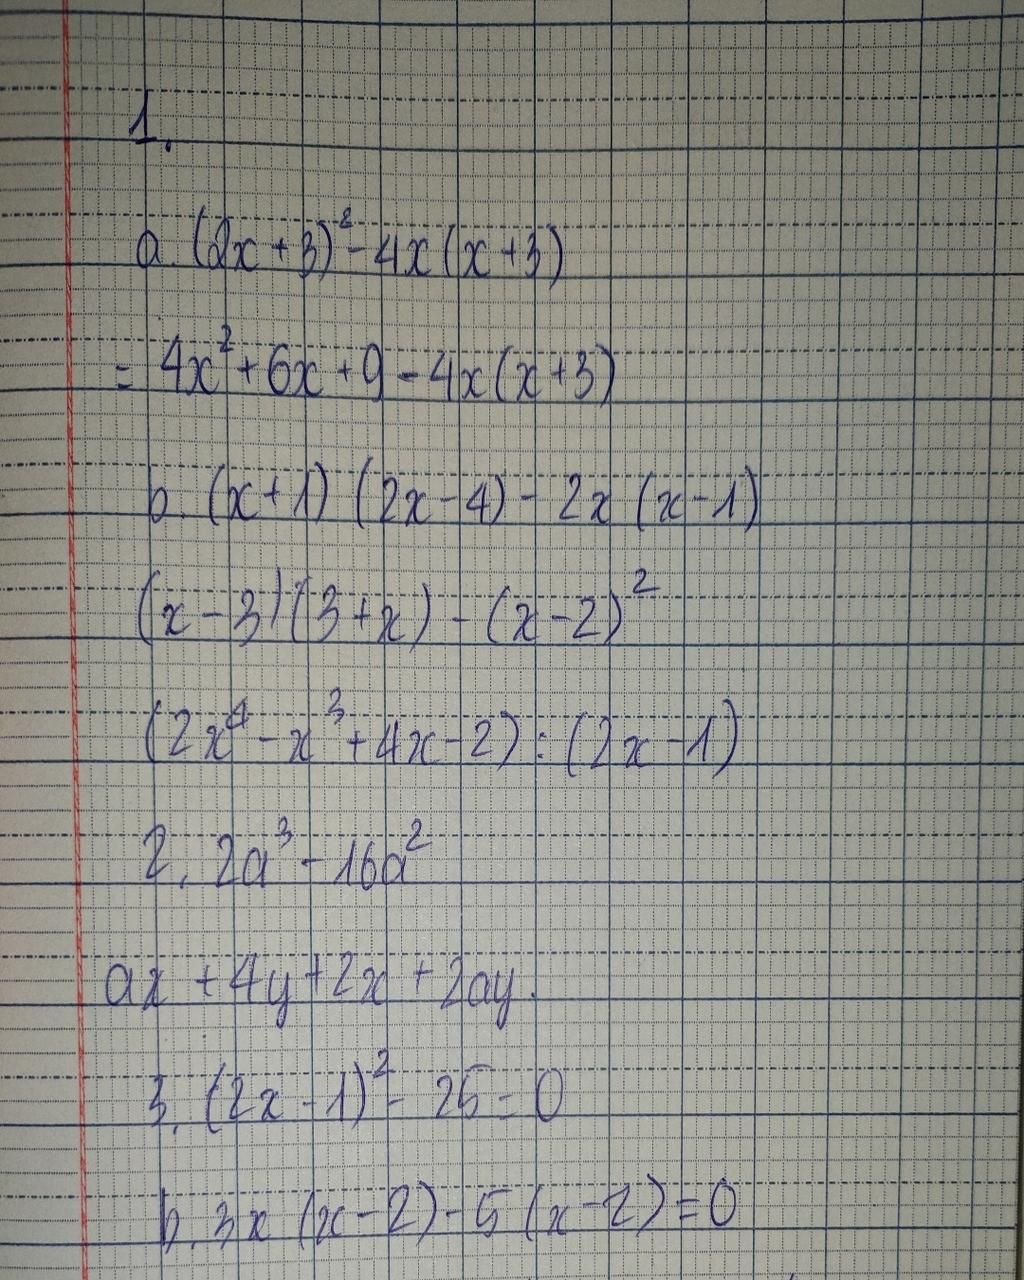 1.
a. (2x + 3)² - 4x (x + 3)
= 4x² + 6x + 9 - 4x (x + 3)
b. (x + 1) (2x - 4) - 2x (x - 1)
(x - 3) (3 + x) - (x - 2)²
(2x⁴ - x³ + 4x - 2) : (2x - 1)
2. 2a³ - 16a²
ax + 4y + 2x + 2ay.
3. (2x - 1)² - 25 = 0
b. 3x (x - 2) - 5 (x - 2) = 0